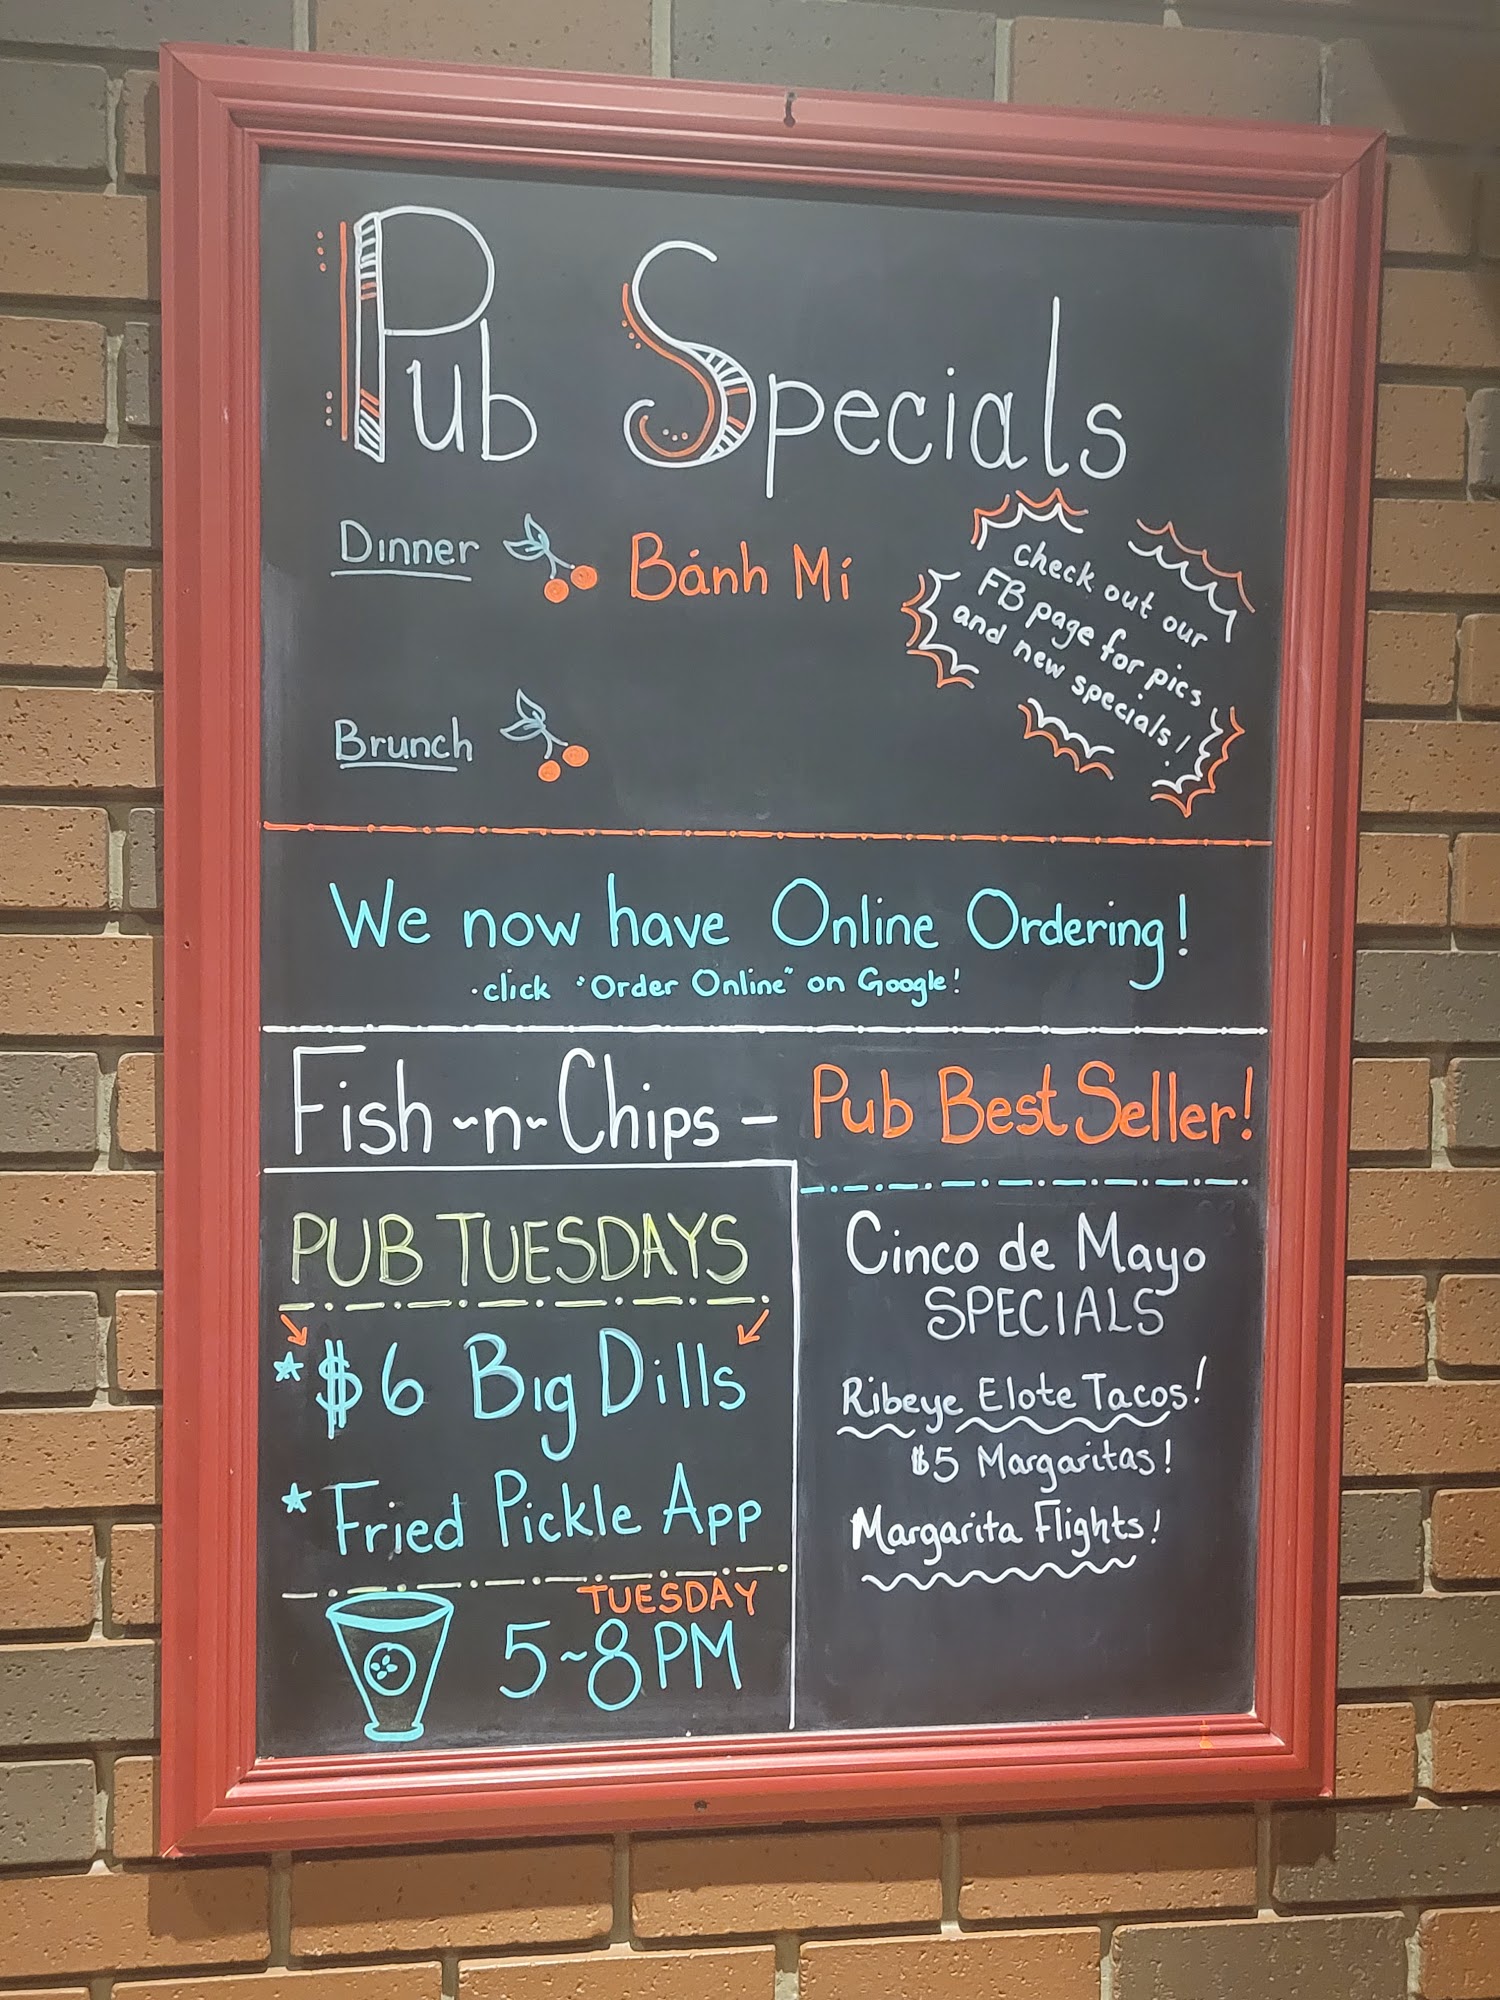 Pub Specials
Dinner Bánh Mí
check out our
FB page for pics
and new specials!
Brunch
We now have Online Ordering!
·click "Order Online" on Google!
Fish~n~Chips - Pub Best Seller!
PUB TUESDAYS
* $6 Big Dills
* Fried Pickle App
TUESDAY
5~8PM
Cinco de Mayo
SPECIALS
Ribeye Elote Tacos!
$5 Margaritas!
Margarita Flights!